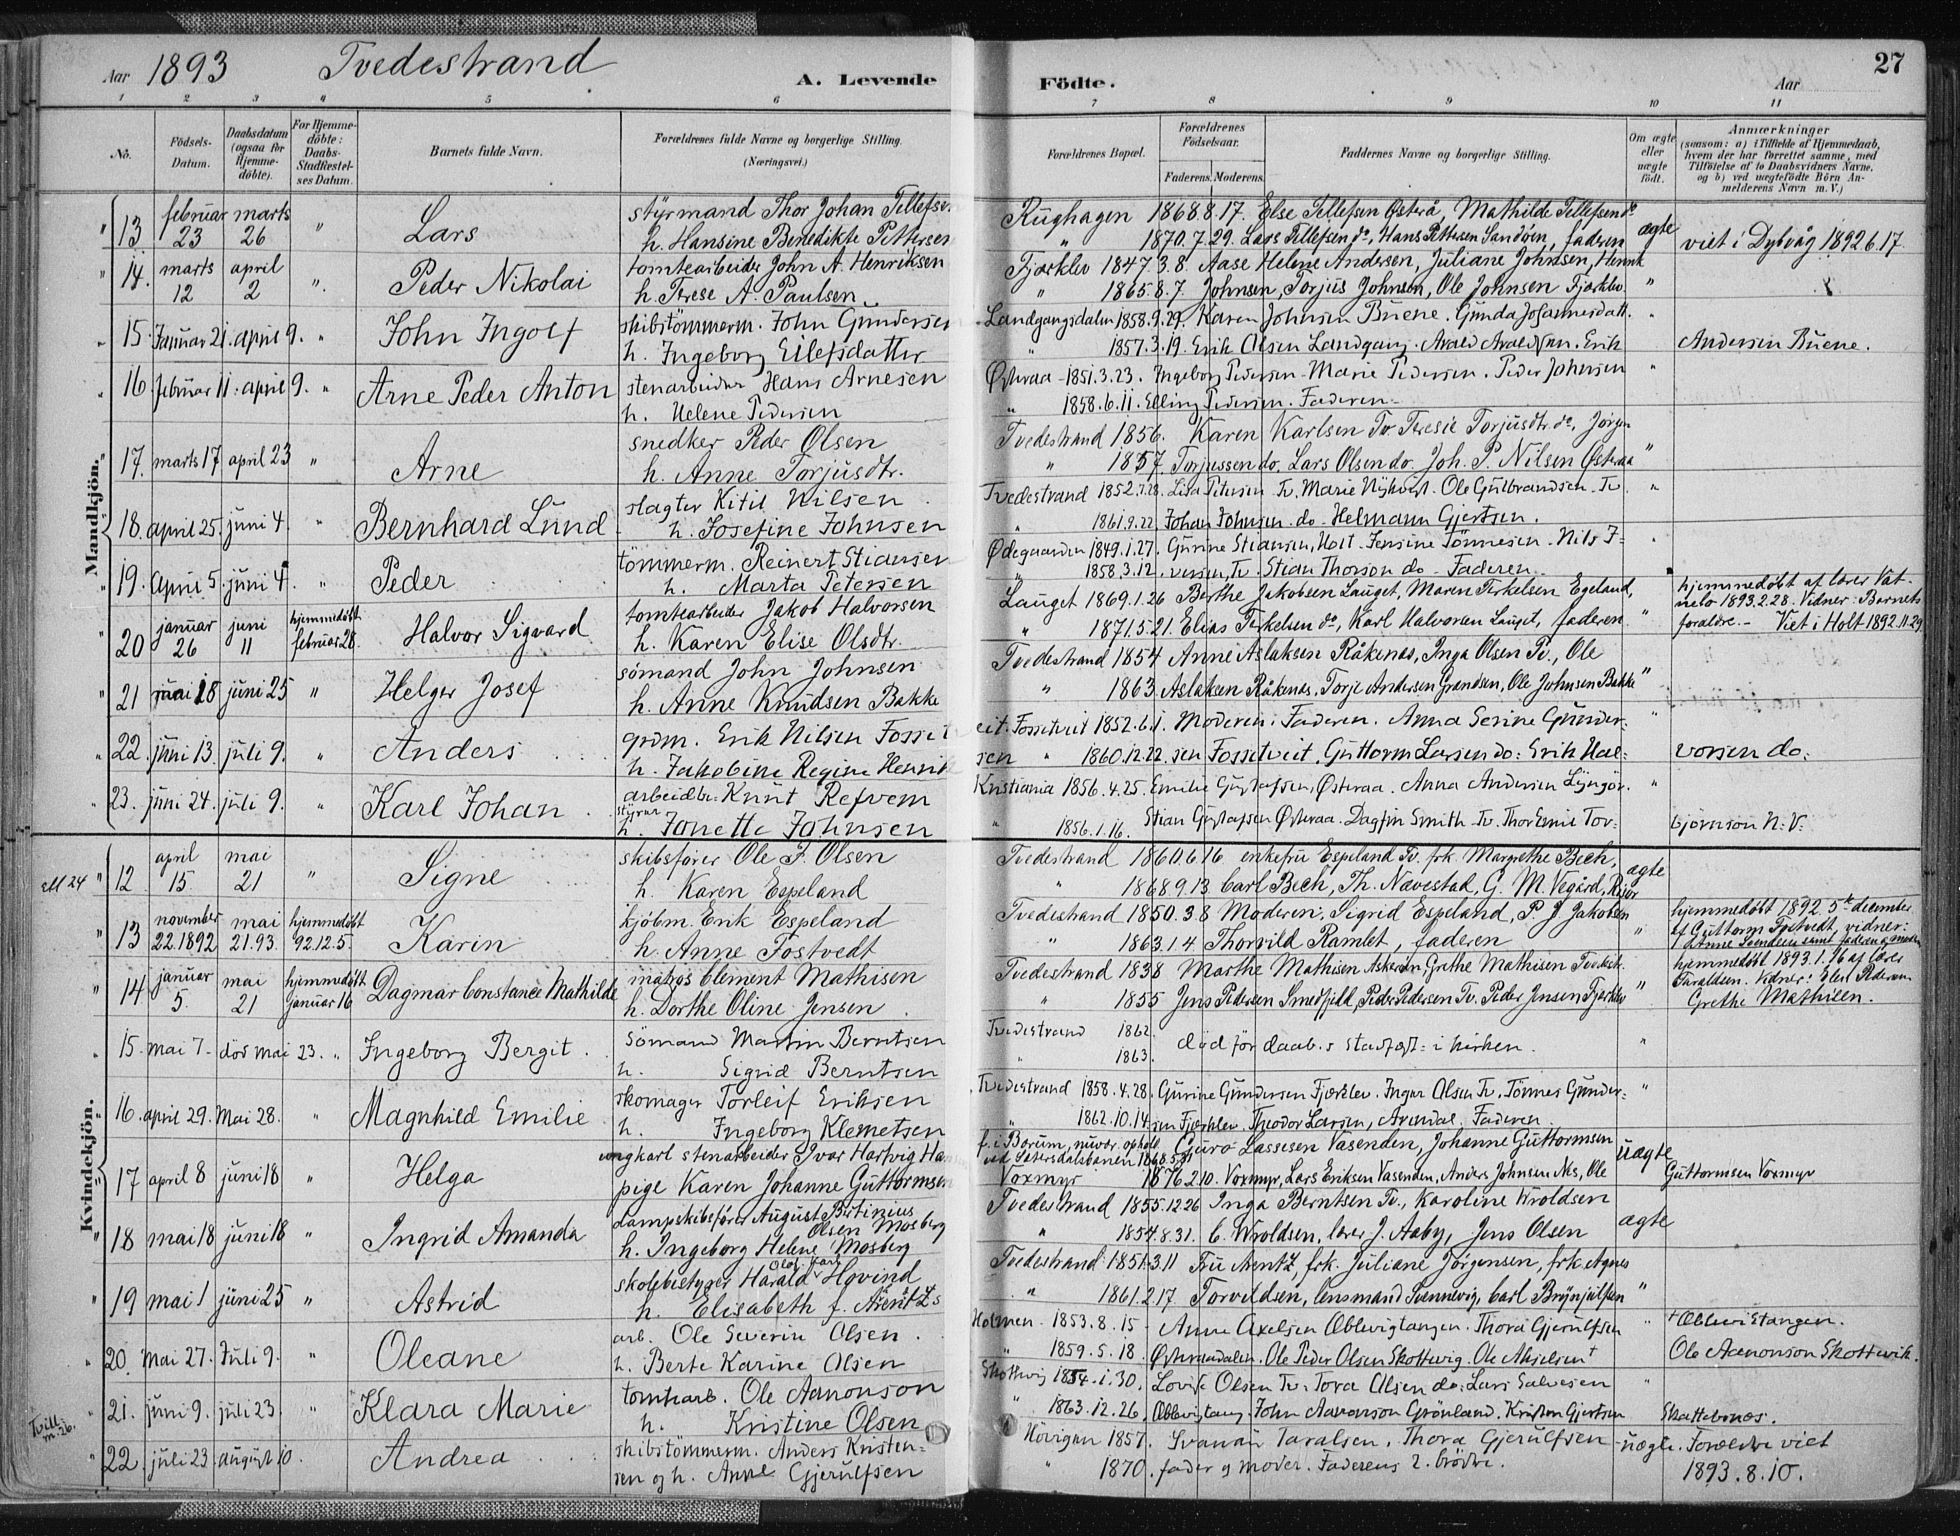 Aar 1893 Tvedestrand A. Levende Födte. Aar 27
1 2 3 4 5 6 7 8 9 10 11
No. Födsels-Datum. Daabsdatum (ogsaa for Hjemme-döbte). For Hjemme-döbte: Daabs-Stadfæstel-ses Datum. Barnets fulde Navn. Forældrenes fulde Navne og borgerlige Stilling. (Næringsvei.) Forældrenes Bopæl. Forældrenes Födselsaar. Faderens. Moderens. Faddernes Navne og borgerlige Stilling. Om ægte eller uægte födt. Anmærkninger (saasom: a) i Tilfælde af Hjemmedaab, hvem der har forrettet samme, med Tilföielse af to Daabsvidners Navne, og b) ved uægtefödte Börn An-melderens Navn m. V.)
Mandkjön.
februar marts styrmand Thor Johan Tellefsen Rughagen 1868.8.17. Else Tellefsen Østerå, Mathilde Tellefsen do
" 13 23 26 " Lars h. Hansine Benedikte Pettersen " 1870.7.29. Lars Tellefsen do, Hans Pettersen Sandøen, faderen ægte viet i Dybvåg 1892.6.17.
" 14. marts april tomtearbeider John A. Henriksen Fjærklev 1847.3.8. Aase Helene Andersen, Juliane Johnsen, Henrik
12 2 ". Peder Nikolai h. Terese A. Paulsen " 1865.8.7. Johnsen, Torjus Johnsen, Ole Johnsen Fjærklev. "
15. Januar 21. april 9. " John Ingolf skibstömmerm. John Gundersen Landgangsdalen 1858.9.29. Karen Johnsen Buene. Gunda Johannesdatt.
h. Ingeborg Eilefsdatter " 1857.3.19. Erik Olsen Landgang. Avald Avaldsen. Erik Andersen Buene.
16. februar 11. april 9. " Arne Peder Anton stenarbeider Hans Arnesen Østeraa - 1851.3.23. Ingeborg Pedersen - Marie Pedersen. Peder Johnsen "
h. Helene Pedersen " 1858.6.11. Elling Pedersen. Faderen.
snedker Peder Olsen Tvedestrand 1856. Karen Karlsen Tv. Teresie Torjusdtr. do, Jörgen
17. marts 17 april 23 " Arne h. Anne Torjusdtr. " 1857. Torjussen do. Lars Olsen do. Joh. P. Nilsen Østeraa "
slagter Kitil Nilsen Tvedestrand 1852.7.28. Lisa Petersen Tv. Marie Nykvist. Ole Gulbrandsen Tv. "
18. april 25. juni 4. " Bernhard Lund h. Josefine Johnsen " 1861.9.22. Johan Johnsen do - Helmann Gjertsen.
tömmerm. Reinert Stiansen Ødegaarden 1849.1.27. Gurine Stiansen, Holt. Jensine Tönnesen. Nils I-
19. April 5. juni 4. " Peder h. Marta Petersen " 1858.3.12. versen, Tv. Stian Thorson do - Faderen.
januar juni hjemmedöbt tomtearbeider Jakob Halvorsen Lauget 1869.1.26 Berthe Jakobsen Lauget, Maren Terkelsen Egeland, hjemmedøbt af lærer Vat-
" 20 26 11 februar 28. Halvor Sigvard h. Karen Elise Olsdtr. " 1871.5.21. Elias Terkelsen do, Karl Halvorsen Lauget, faderen. " nelo 1893.2.28. Vidner: Barnets forældre. - Viet i Holt 1892.11.29
sömand John Johnsen Tvedestrand 1854 Anne Aslaksen Råkenæs, Inga Olsen Tv., Ole
" 21 mai 18 juni 25 " Helger Josef h. Anne Knudsen Bakke " 1863. Aslaksen Råkenæs, Torje Andersen Grændsen, Ole Johnsen Bakke "
" 22. juni 13. juli 9. " Anders grdm. Erik Nilsen Fossetveit. Fossetveit 1852.6.1. Moderen. Faderen. Anna Serine Gunder- "
h. Jakobine Regine Henriksen " 1860.12.22. sen Fossetveit. Guttorm Larsen do: Erik Hal- vorsen do.
23. juni 24. juli 9. " Karl Johan arbeidsstyrer Knut Refvem Kristiania 1856.4.25. Emilie Gustafsen, Østeraa. Anna Andersen Lyngör. "
h. Jonette Johnsen " 1856.1.16. Stian Gustafsen Østeraa. Dagfin Smith Tv. Thor Emil Tor- björnson N: V:
Kvindekjön.
april mai skibsfører Ole J. Olsen Tvedestrand 1860.6.16 enkefru Espeland Tv. frk. Margrethe Bech,
M 24 " 12 15 21 " Signe h. Karen Espeland " 1868.9.13 Carl Bech, Th. Nævestad, G. M. Vegård, Risør ægte
november mai hjemmedøbt kjöbm. Erik Espeland Tvedestrand 1850.3.8 Moderen, Sigrid Espeland, P. J. Jakobsen hjemmedøbt 1892. 5te december
" 13 22.1892 21.93. 92.12.5. Karin h. Anne Fostvedt " 1863.1.4 Thorvild Ramlet, faderen " af Guttorm Fostvedt, vidner: Anne Svendsen samt faderen og moderen
januar mai hjemmedøbt matros Clement Mathisen Tvedestrand 1838 Marthe Mathisen Askerøen, Grethe Mathisen Tvedestr. hjemmedøbt 1893.1.16 af lærer
" 14 5 21 januar 16 Dagmar Constance Mathilde h. Dorthe Oline Jensen " 1855 Jens Pedersen Smedfjeld, Peder Pedersen Tv. Peder Jensen Fjærklev " Taraldsen. Vidner: Elen Pedersen Grethe Mathisen.
15. mai 7. död mai 23. " Ingeborg Bergit. Sömand Martin Berntsen Tvedestrand 1862.
h. Sigrid Berntsen " 1863. död för daab.s stadfæst: i kirken. "
16. april 29. Mai 28. " Magnhild Emilie skomager Torleif Eriksen Tvedestrand 1858.4.28. Gurine Gundersen Fjærklev. Inger Olsen Tv. Tönnes Gunder- "
h. Ingeborg Klemetsen " 1862.10.14. sen Fjærklev. Theodor Larsen, Arendal. Faderen.
ungkarl stenarbeider Ivar Hartvig Hansen f. i Borum, nuvær. ophold ved Sætersdalsbanen 1868.5.31 Guro Lassesen Vasenden, Johanne Guttormsen uægte
" 17 april 8 juni 18 " Helga pige Karen Johanne Guttormsen Voxmyr 1876.2.10. Voxmyr, Lars Eriksen Vasenden, Anders Johnsen Næs, Ole Guttormsen Voxmyr
dampskibsfører August Bertinius Olsen Mosberg Tvedestrand 1855.12.26 Inga Berntsen Tv., Karoline Wroldsen ægte
" 18 mai 18 juni 18 " Ingrid Amanda h. Ingeborg Helene Mosberg " 1854.8.31. C. Wroldsen, lærer J. Aaby, Jens Olsen
skolebestyrer Harald Olaf Hovind Tvedestrand 1851.3.11 Fru Arentz, frk. Juliane Jørgensen, frk. Agnes
" 19 mai 1 juni 25 " Astrid h. Elisabeth f. Arentz " 1861.2.17 Torvildsen, lensmand Svennevig, Carl Brynjulfsen "
20. Mai 27. Juli 9. " Oleane arb. Ole Severin Olsen. Holmen - 1853.8.15 - Anne Axelsen Æblevigtangen. Thora Gjerulfsen " + Æblevistangen.
h. Berte Karine Olsen " 1859.5.18. Østeraadalen. Ole Peder Olsen Skottvig. Ole Akselsen + Ole Aanonson Skottvik.
21. juni 9. juli 23. " Klara Marie tomtarb. Ole Aanonson Skottvig 1854.1.30. Lovise Olsen Tv: Tora Olsen do: Lars Salvesen "
Tvill. m. 26. h. Kristine Olsen " 1863.12.26. Æblevigtang. John Aanonson Grönland. Kristen Gjertsen Skattebnæs.
22. juli 23. august 10. " Andrea skibstömmerm. Anders Kristen- Hövigen 1857. Svanau Taralsen. Thora Gjerulfsen - uægte. Forældre viet
sen og h. Anne Gjerulfsen " 1870. fader og moder. Faderens 2. brödre. 1893.8.10.